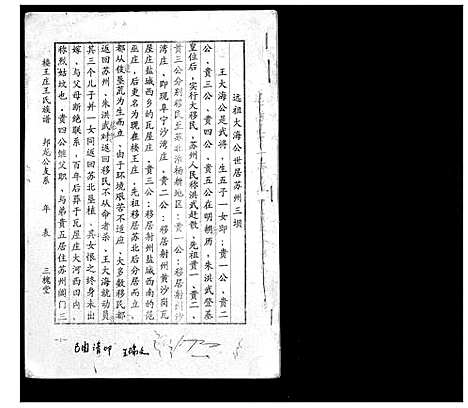 远祖大海公世居苏州三坝
王大海公是武将，生五子一女即：贵一公，贵二
公，贵三公，贵四公，贵五公在明朝历，朱洪武登基
皇位后，实行大移民，苏州人民称洪武赶散，先祖贵一，贵二，
贵三公分别移民至苏北 地区：贵一公：移居射州沙
湾庄，即现阜宁沙湾庄，贵二公：移居射州黄沙岗瓦
屋庄盐城西乡的瓦屋庄，贵三公：移居射州盐城西南的范
巫庄，后更名为现在楼王庄，先祖移居苏北后分居而立，
都从伐垦荒为生而立，由于环境艰苦不适应，大多数移民都
返回苏州，朱洪武对返回移民不从命者杀，王大海就动员
其三个儿子并一女同返回苏北垦植，其女恨之终身未出
嫁，与父母断绝联系，百年后葬于瓦屋庄大河西四内，
称烈姑坟也，贵四公继父职，与弟贵五居住苏州阊门三
楼王庄王氏族谱 邦龙公支系 年表 三槐堂
清印 王瑞文